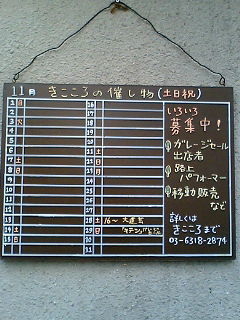 11月 きこころの催し物(土日祝)
1 日
2
3 火
4
5
6
7 土
8 日
9
10
11
12
13
14 土
15 日
16
17
18
19
20
21 土
22 日
23
24
25
26
27
28 土 16〜 大道芸
29 日
いろいろ
募集中!
ガレージセール
出店者
路上
パフォーマー
移動販売
など
詳しくは
きこころまで
03-6318-2874